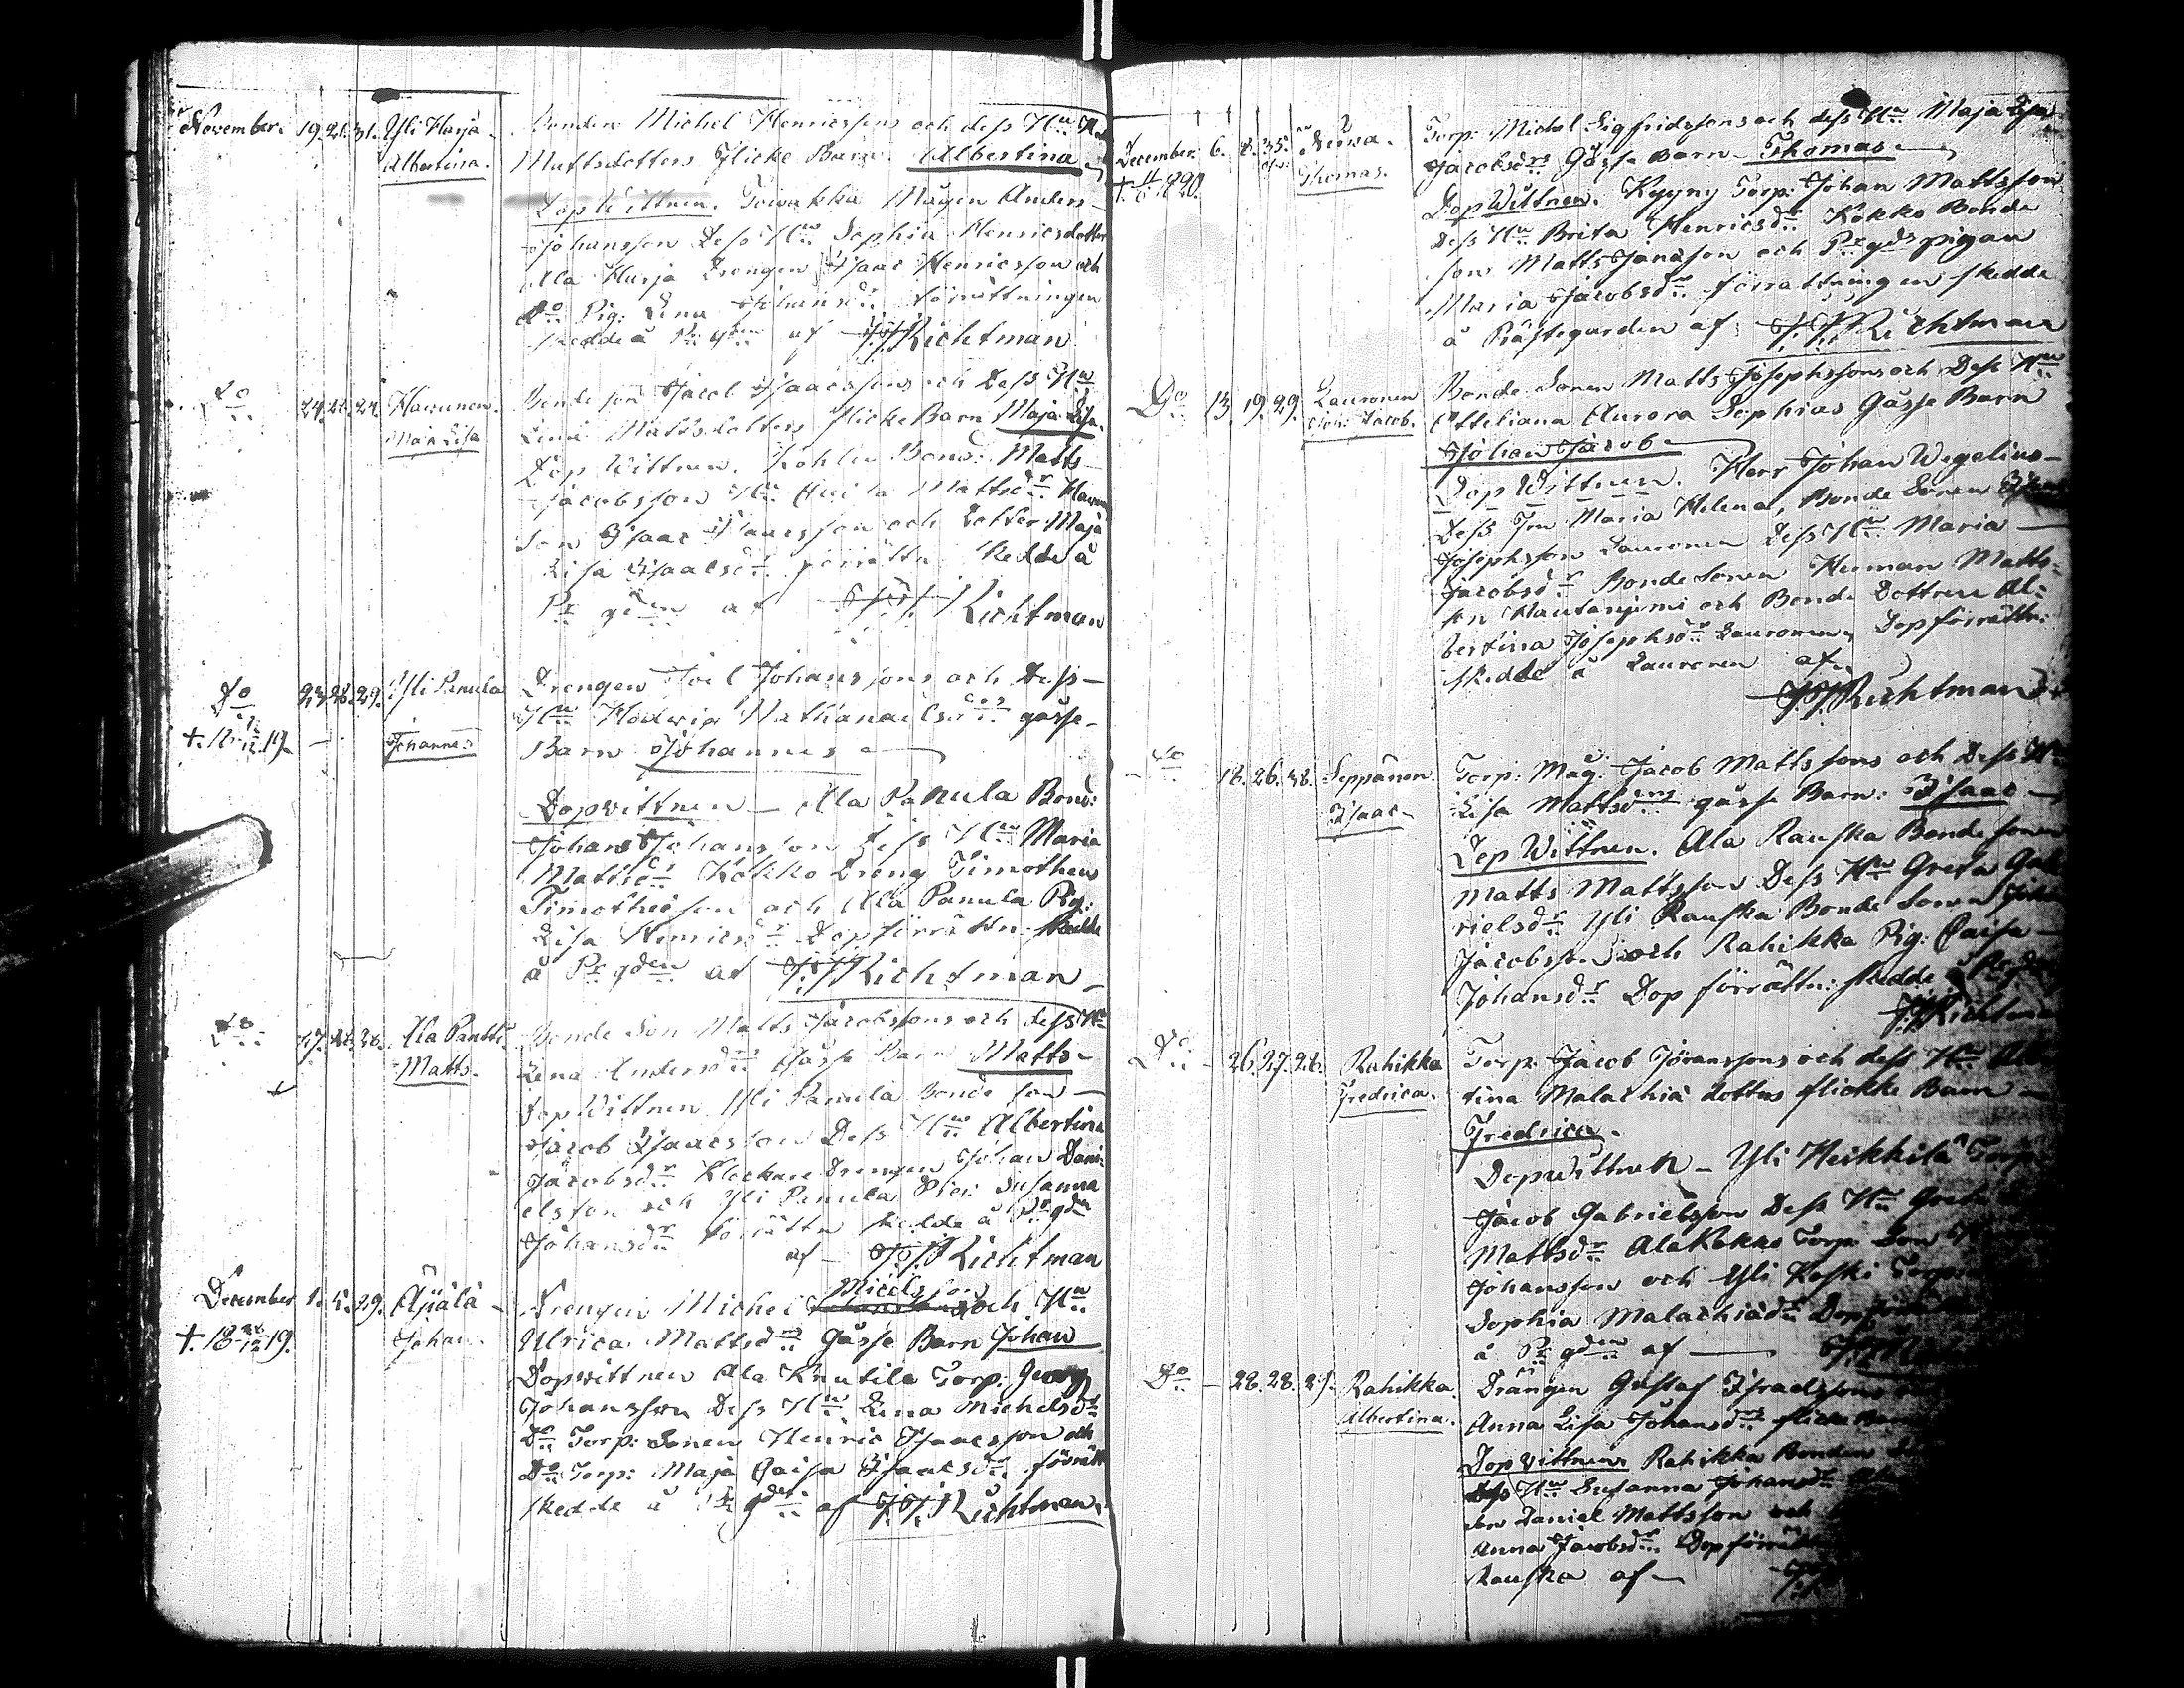 November. 19. 21. 31. Yli Harja. Bonden Michel Henricssons och dess Hu
Albertina. Mattsdotters flicke Barn. Albertina
Dop Wittnen. Toivakka Mågen Anders
Johansson Dess Hu Sophia Henricsdotter
Ala Harja Drengen Isaac Henricsson och
Do Pig: Lena Johansdr förrättningen
skedde å Pr gden af J.J. Richtman
Do 24. 24. Havunen. Bonde son Jacob Isaacssons och Dess Hu
Maja Lisa Lena Mattsdotters flicke Barn Maja Lisa.
Dop Wittnen. Bond: Matts
Jacobsson Hu Mattsdr
Son Isaac Isaacsson och Dotter Maja
Lisa Isaacsdr förrättn skedde å
Pr gden af J.J. Richtman
Do 23. 28. 29. Yli Panula Drengen Joel Johanssons och Dess
Hu Hedwig Nathanaelsdrs gåsse
+. 18 19. Johannes Barn Johannes
Dopvittnen Ala Panula Bond:
Johans Johansson Dess Hu Maria
Mattsdr Kokko Dreng Timotheus
Timotheisson och Ala Panula Pig:
Lisa Henricsdr Dopförrättn: skedde
å Pr gden af J.J. Richtman
Do 27. 28. Ala Pantti Bonde Son Matts Jacobssons och dess Hu
Matts. Lena Andersdrs Gåsse Barn Matts
Dop Wittnen Yli Panula Bonde son
Jacob Isaacsson Dess Hu Albertina
Jacobsdr Klockare Drengen Johan Dani-
elsson och Yli Panula Pig: Susanna
Johansdr förrättn skedde å Pr gdn
af J.J. Richtman
December 1. 5. 29. Äijälä Drengen Michel Micelsson och Hu
+ 18 19. Johan. Ulrica Mattsdrs Gåsse Barn Johan
Dopvittnen Ala Knutila Torp: Georg
Johansson Dess Hu Lena Michelsdr
Do Torp: Sonen Henric Isaacsson och
Do Torp: Maja Caisa Isaacsdr förrätt
skedde å Pr gden af J.J. Richtman.
December. 6. 8. 35. Nirva. Torp: Michel Sigfridssons och dess Hu Maja Lisa
+. 1820. Thomas. Jacobsdrs Gåsse Barn Thomas
Dop Wittnen. Kyyny Torp: Johan Mattsson
Dess Hu Brita Henricsdr Kokko Bonde
son Matts Jonasson och Pr gds pigan
Maria Jacobsdr förrattningen skedde
å Pråstegarden af J.J. Richtman
Do 13. 19. 29. Lauronen Bonde Sonen Matts Josephssons och Dess Hu
Joh: Jacob. Otteliana Aurora Sophias Gåsse Barn
Johan Jacob
Dop Wittnen. Herr Johan Wegelius
Dess Fru Maria Helena, Bonde Sonen
Josephsson Lauronen Dess Hu Maria
Jacobsdr Bondesonen Herman Matts-
son Rautanjemi och Bonde Dottren Al-
bertina Josephsdr Lauronen, Dopförrättn:
skedde å Lauronen af
J.J. Richtman
Do 18. 26. 38. Seppänen. Torp: Måg: Jacob Mattssons och Dess Hu
Isaac Lisa Mattsdrs gåsse Barn: Isaac
Dop Wittnen. Ala Rauska Bonde sonen
Matts Mattsson Dess Hu Greta Gab
rielsdr Yli Rauska Bonde Sonen
Jacobsson och Rahikka Pig: Caisa
Johansdr Dop förrättn: skedde å
J.J. Richtman
Do 26. 27. 28. Rahikka Torp: Jacob Joranssons och dess Hu Alber
Fredrica. tina Malachiä dotters flickke Barn
Fredrica.
Dopwittnen Yli Heikkilä Torp:
Jacob Gabrielsson Dess Hu Greta
Mattsdr Ala Kokko Torp: Son
Johansson och Yli Koski Torp:
Sophia Malachiädr Dop
å Pr gden af
Do 28. 28. Rahikka. Drängen Gustaf Israelssons
Albertina. Anna Lisa Johansdrs flicke Barn
Dopvittnen Rahikka Bonden
Dess Hu Susanna Johansdr
Daniel Mattsson och
Anna Jacobsdr. Dopförrätt
Rauska af